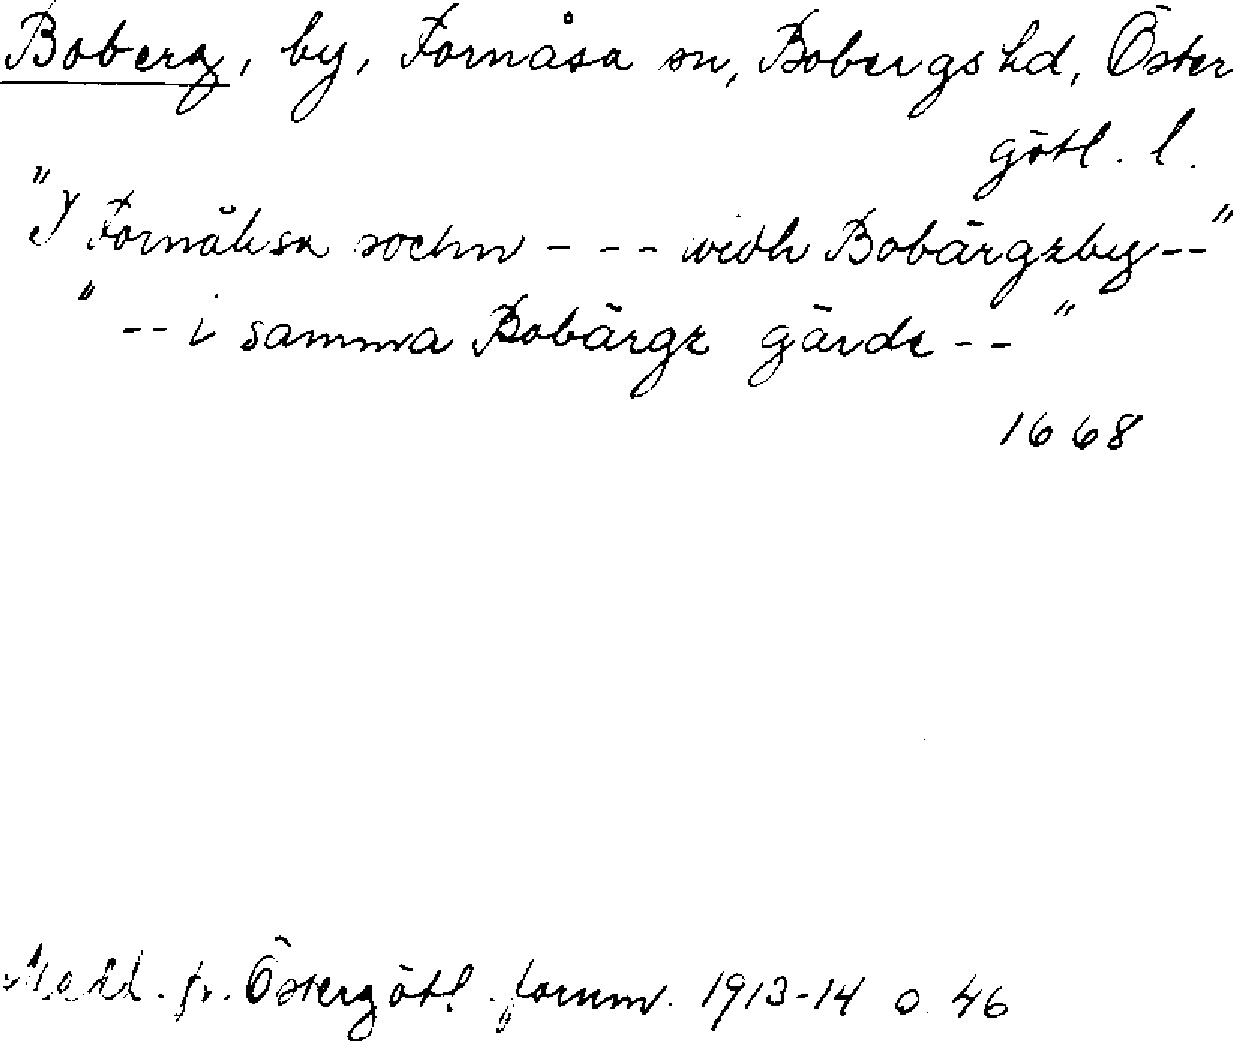 Boberg, by, Fornåsa sn, Bobergs hd, Öster
götl. l.
"I Fornåhsa sochn - - - widh Bobärgzby - - "
" - - i samma Bobärgz gärde - - "
1668
Medd. fr. Östergötl. fornm. 1913-14 s. 46